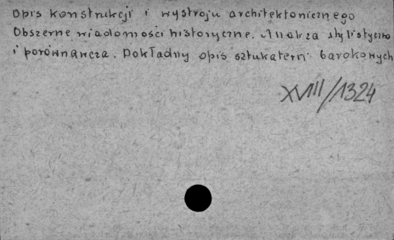 Opis konstrukcji i wystroju architektonicznego
Obszerne wiadomości historyczne. Analiza stylistyczno
i porównawcza. Dokładny opis sztukaterii barokowych
XVIII/1324